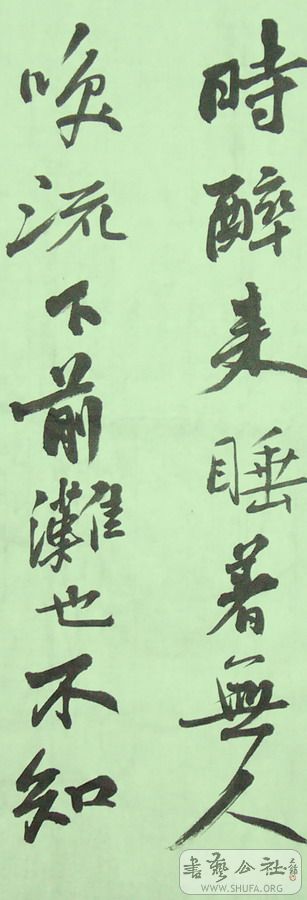 時醉来睡着無人
唤流下前灘也不知
書藝公社
WWW.SHUFA.ORG